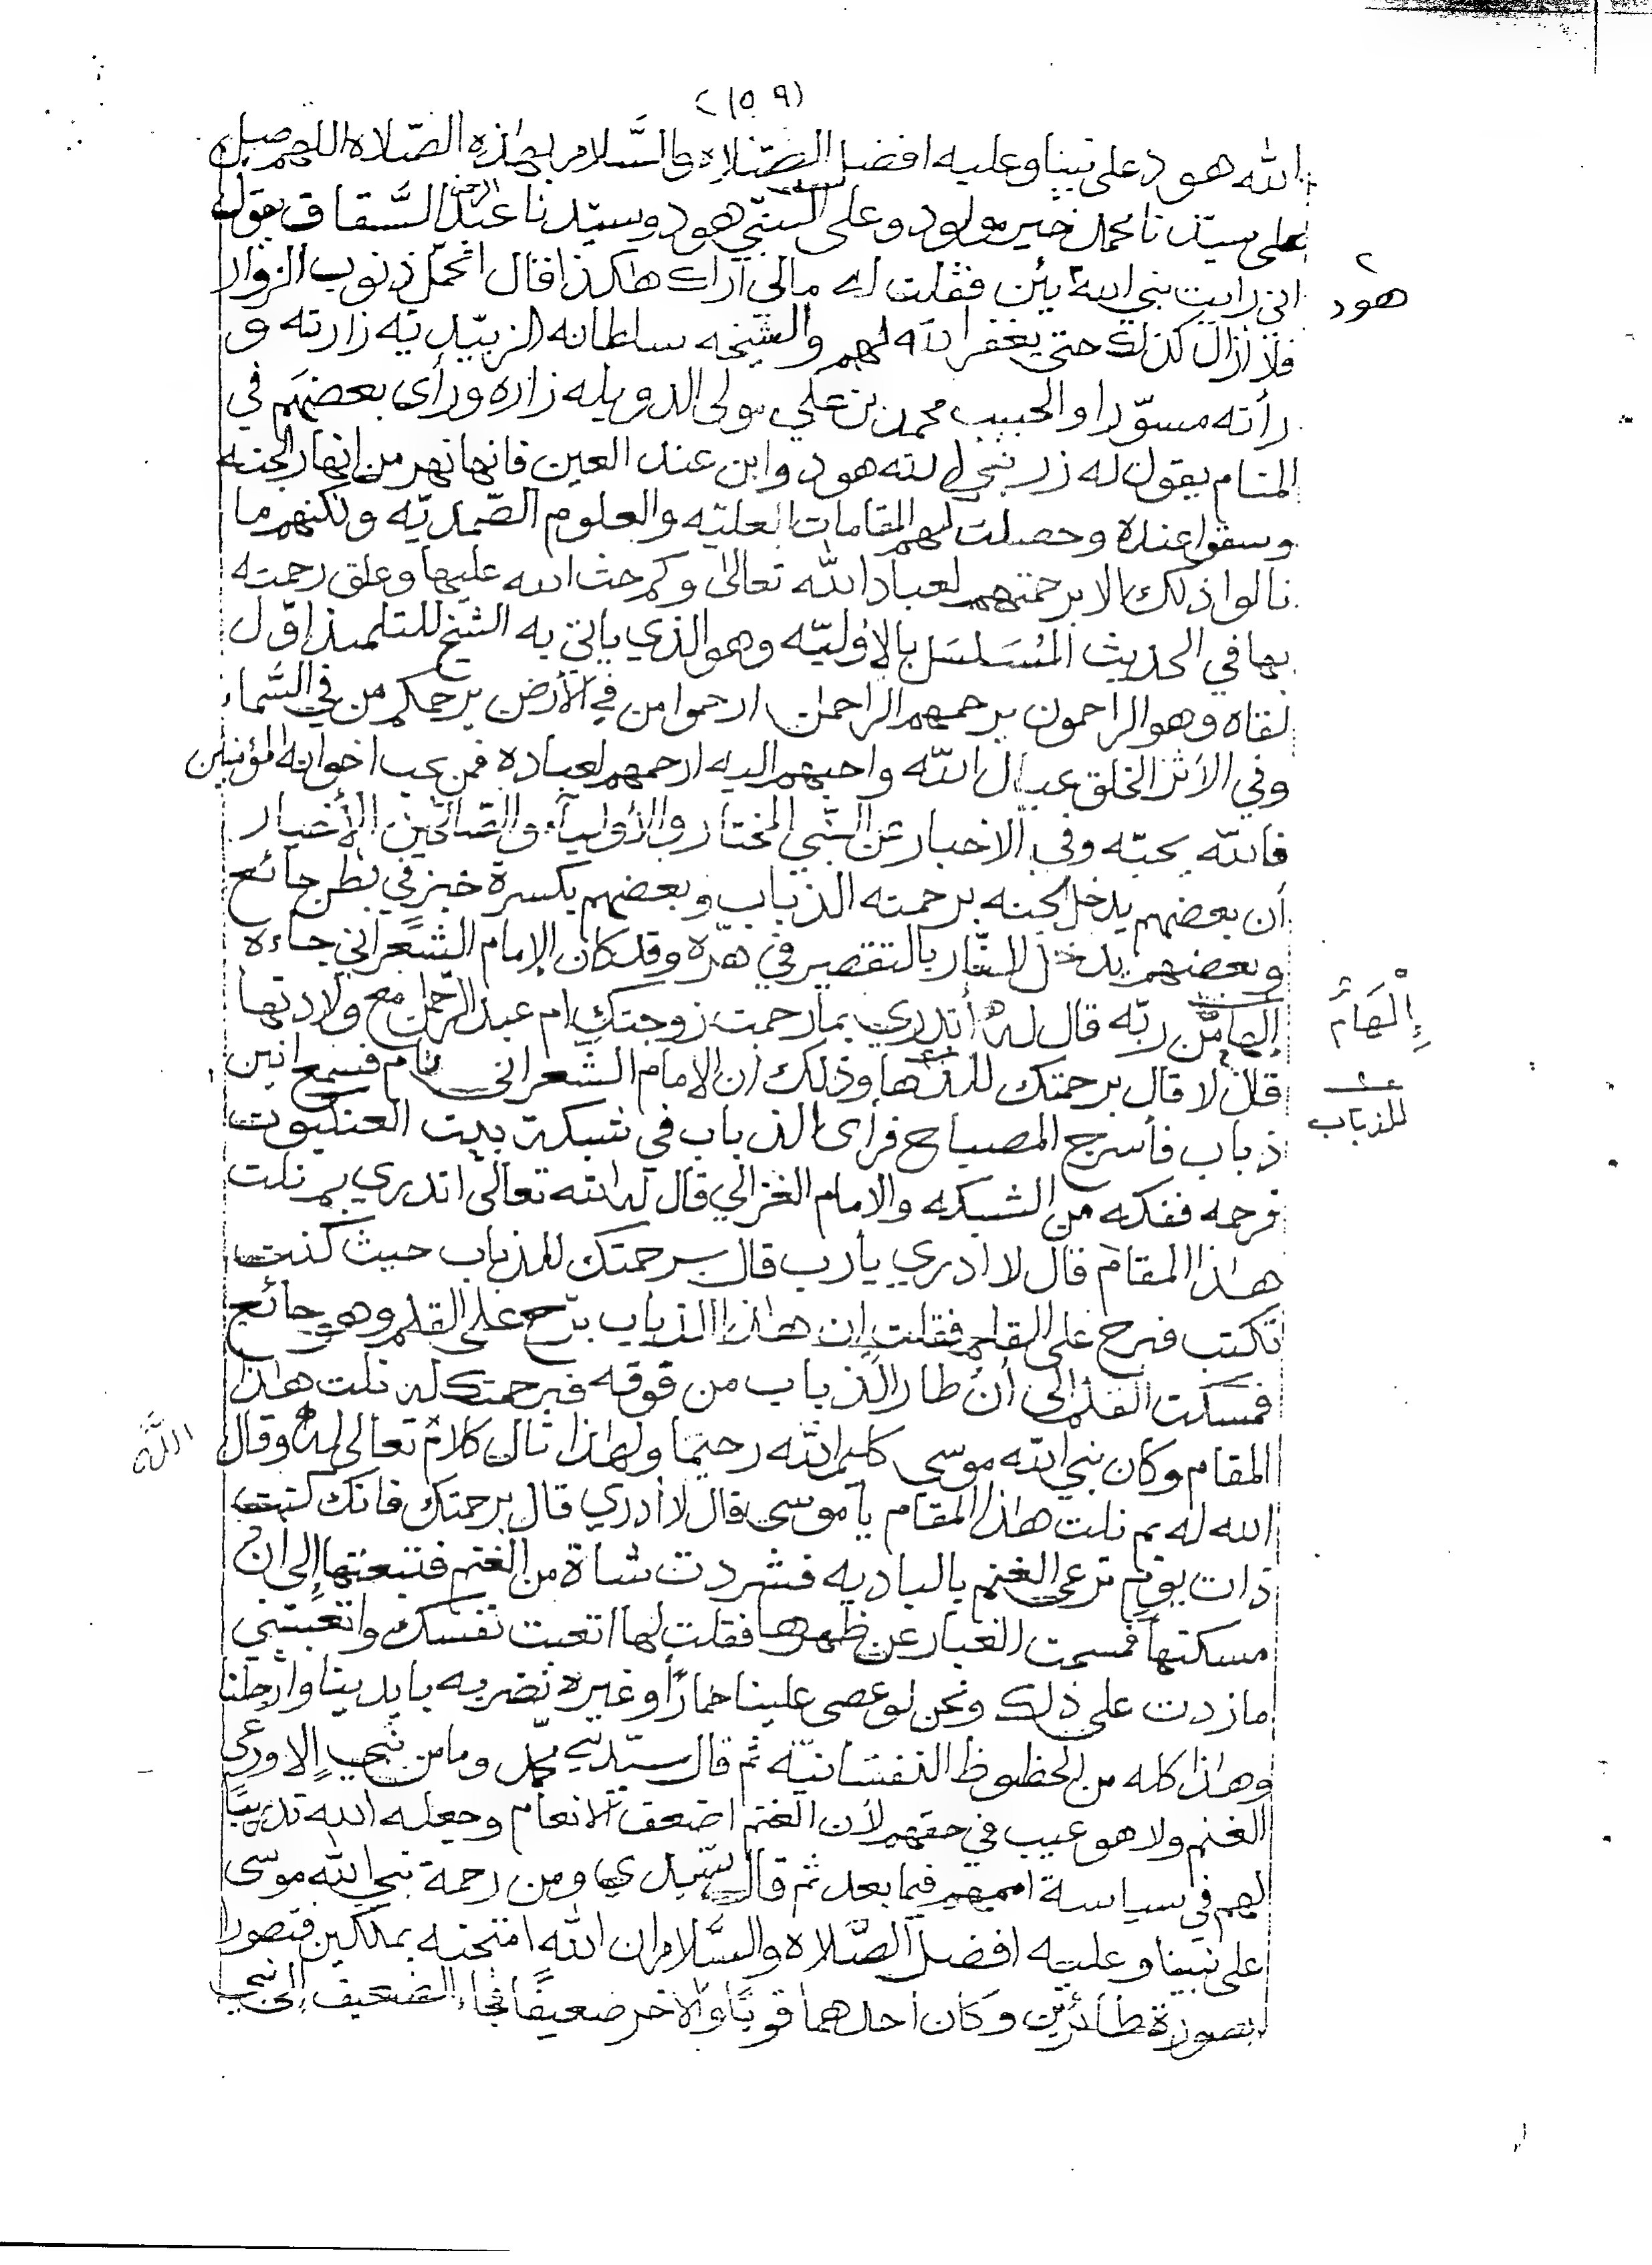 (١٥٩)
الله هود على نبينا وعليه افضل الصّلاة والسَّلام بهاذه الصّلاة اللهم صل
على سيّدنا محمد خير مولود وعلى النبيّ هود وسيّدنا عبد الرحمن السَّقاف يقول
اني رايت نبي الله يئن فقلت له مالي اراك هاكذا فقال اتحمّل ذنوب الزوار
هود
فلا ازال كذلك حتى يغفر الله لهم والشيخه سلطانه الزبيّديّه زارته و
رأته مسوّرا والحبيب محمد بن علي مولى الدويله زاره ورأى بعضهم في
المنام يقول له زر نبي الله هود وابن عند العين فانها نهر من انهار الجنه
وسقوا عنده وحصلت لهم المقامات العليّه والعلوم الصّمديّه ولكنهم ما
نالوا ذلك الا برحمتهم لعباد الله تعالى وكم حث الله عليها وعلق رحمته
بها في الحديث المُسَلسَل بالاوليّه وهو الذي ياتي به الشيخ للتلميذ اوّل
لقاه وهو الراحمون يرحمهم الراحمان ارحموا من في الأرض يرحمكم من في السَّماء
وفي الأثر الخلق عيال الله واحبهم اليه ارحمهم لعباده فمن يحب اخوانه المؤمنين
فالله يحبّه وفي الاخبار عن النّبي المختار والأولياء والصّالحين الأخيار
أن بعضهم يدخل الجنه برحمته الذباب وبعضهم بكسرة خبز في بطن جائع
وبعضهم يدخل النّار بالتقصير في هرّه وقد كان الإمام الشَّعراني جاءه
إلهام من ربّه قال له أتدري بما رحمت زوجتك ام عبد الرحمان مع ولادتها
إِلْهَامٌ
قلت لا قال برحمتك وذلك ان الامام الشَّعراني نام فسمع انين
للذباب
ذباب فأسرج المصباح فرأى الذباب في شبكة بيت العنكبوت
فرحمه ففكه من الشبكه والامام الغزالي قال له الله تعالى اتدري بم نلت
هاذا المقام قال لا ادري يارب قال برحمتك للذباب حيث كنت
تكتب فبرح على القلم فقلت إن هاذا الذباب برّح على القلم وهو جائع
فمسكت القلم الى أن طار الذباب من فوقه فبرحمتك له نلت هاذا
المقام وكان نبي الله موسى كليم الله رحيمًا ولهاذا نال كلام تعالى له وقال
الله
الله له بم نلت هاذا المقام يا موسى قال لا أدري قال برحمتك فانك كنت
ذات يوم ترعى الغنم بالباديه فشردت شاة من الغنم فتبعتها إلى ان
مسكتها فمسحت الغبار عن ظهرها فقلت لها اتعبت نفسك واتعبتني
ما زدت على ذلك ونحن لو عصى علينا حمارًا وغيره نضربه بايدينا وارجلنا
وهاذا كله من الحظوظ النفسَانيّة ثم قال سيّدي محمّد وما من نبي إلا ورعى
الغنم ولا هو عيب في حقهم لأن الغنم اضعف الانعام وجعله الله تدريبًا
لهم في سياسة اممهم فيما بعد ثم قال سيّدي ومن رحمة نبي الله موسى
على نبينا وعليه افضل الصَّلاة والسَّلام ان الله امتحنه بملكين فتصورا
بصورة طائرين وكان احدهما قويًا والاخر ضعيفًا فجاء الضعيف إلى نبي